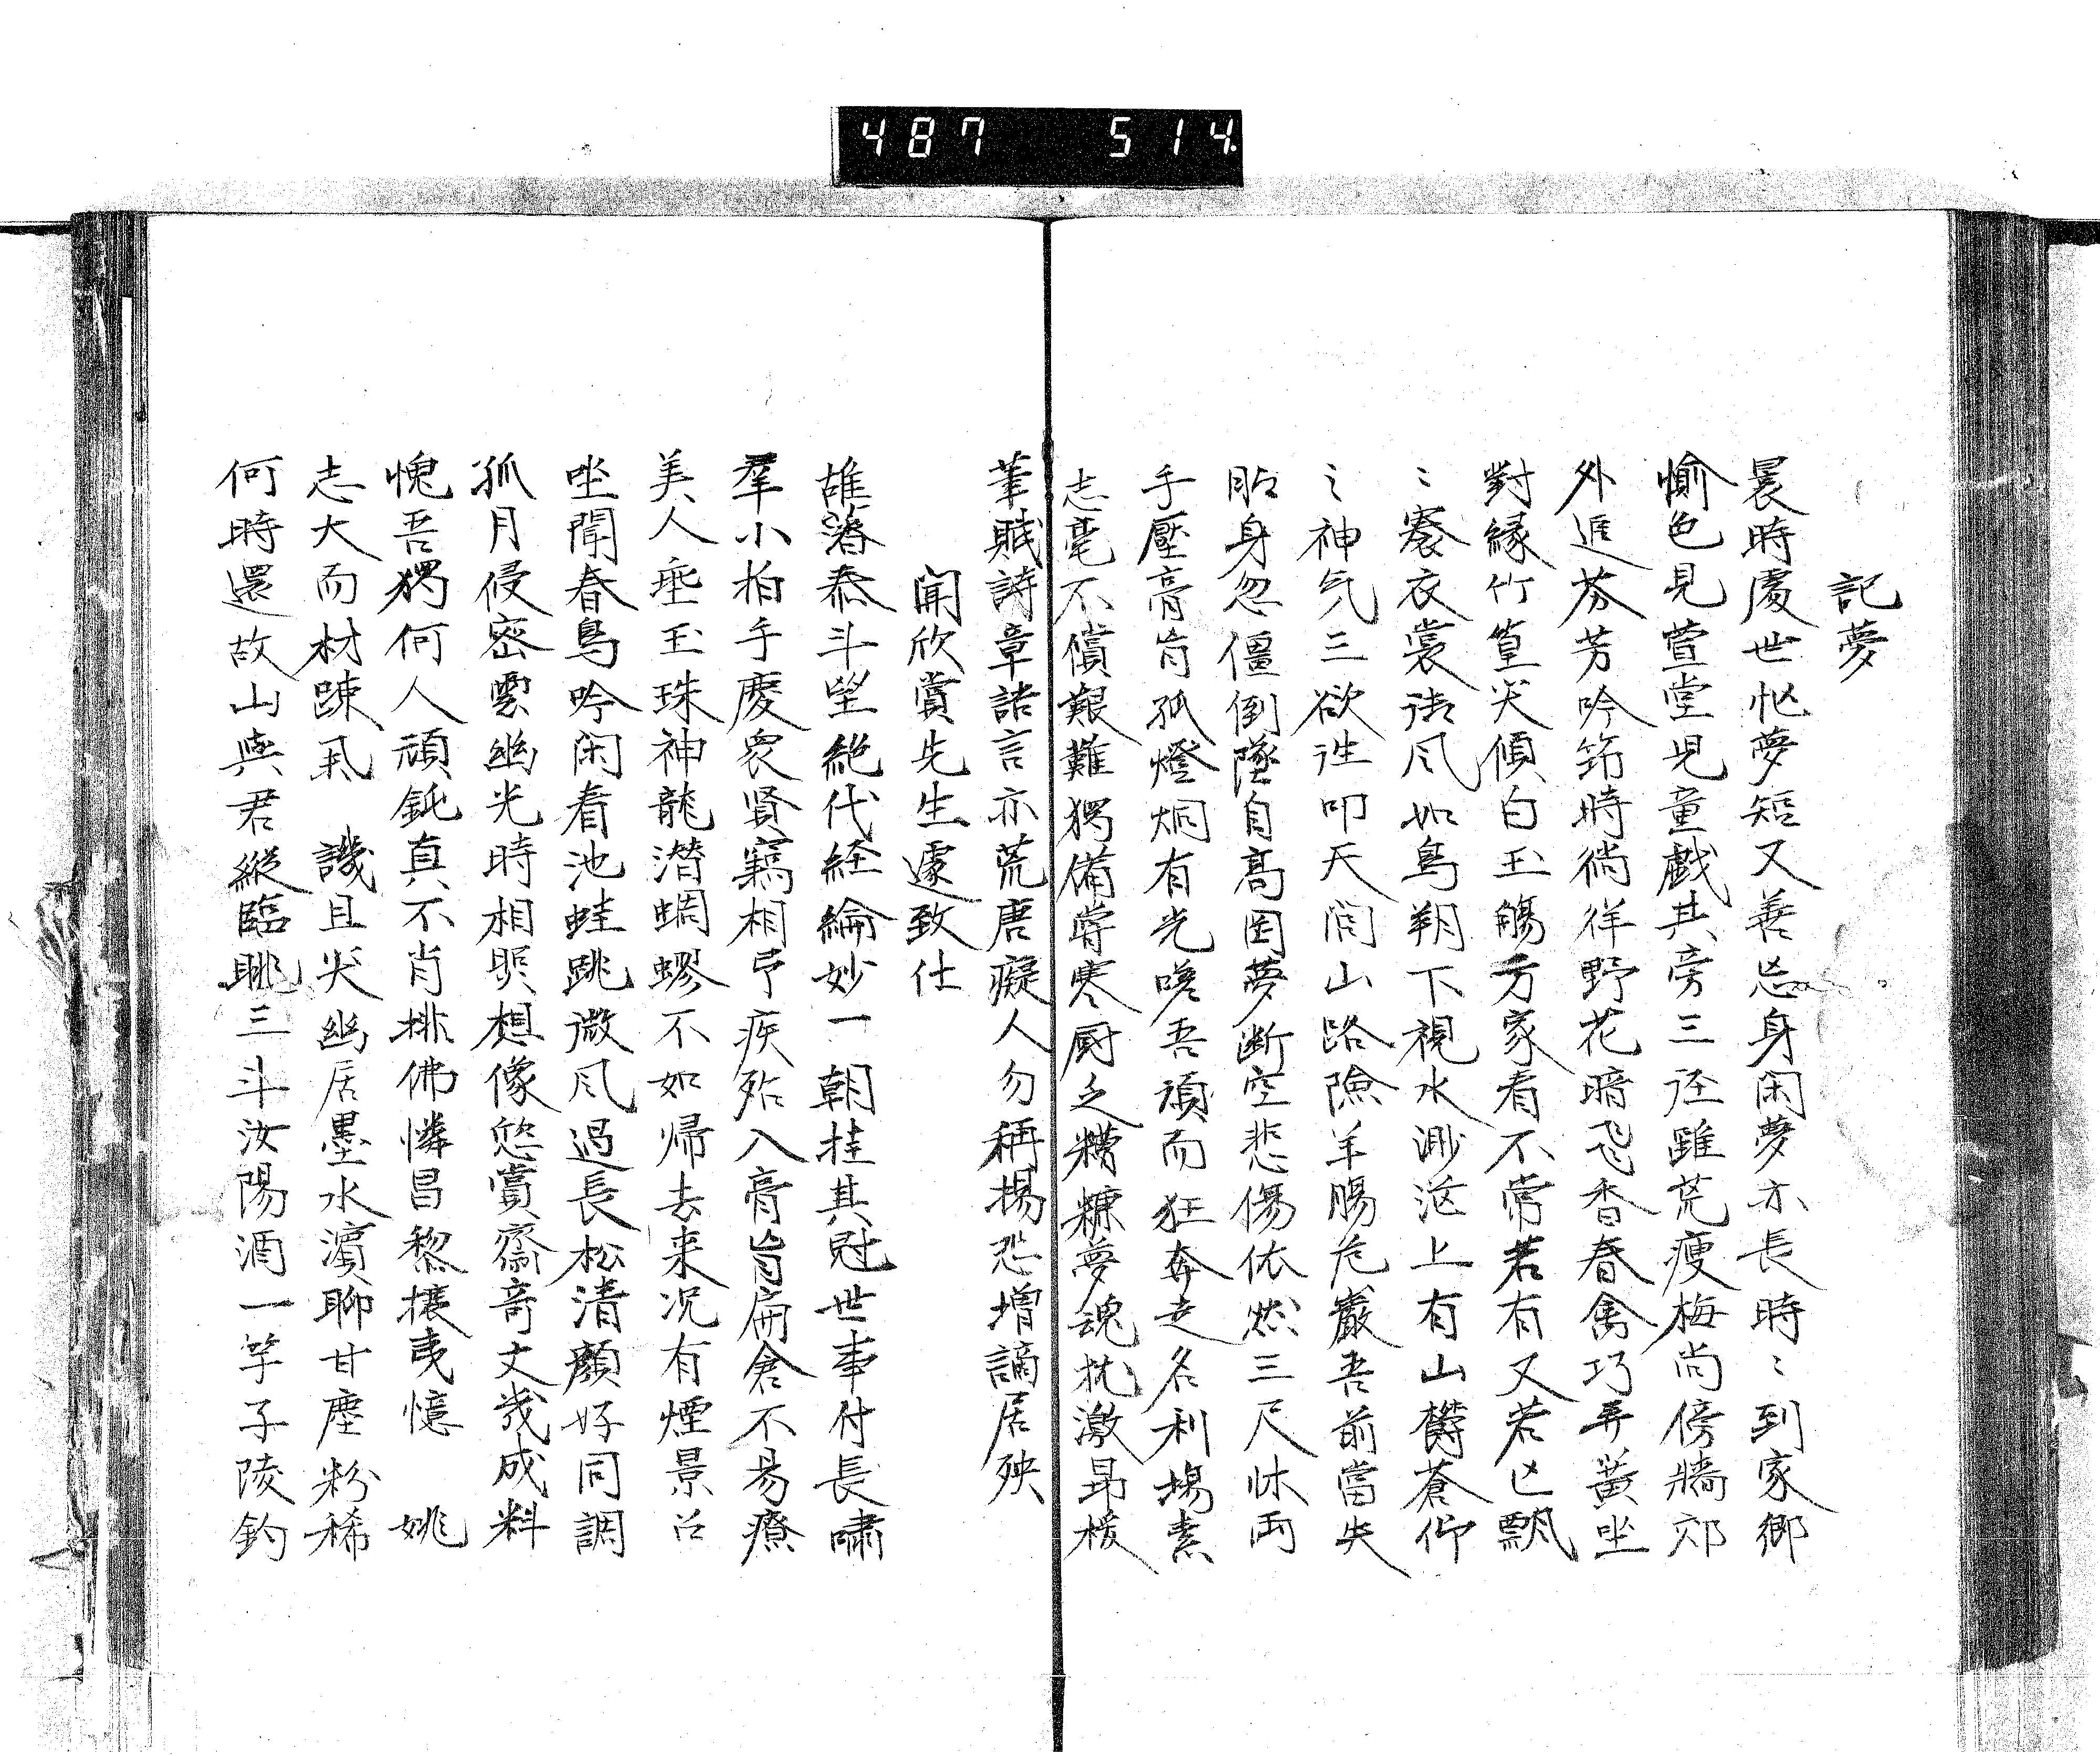 487 514
記夢
曩時處世忙夢短又善忘身閑夢亦長時〻到家鄉
愉色見萱堂児童戯其旁三逕雖荒瘦梅尚傍牆郊
外進芬芳吟筇時徜徉野花暗飛香春禽巧弄黄坐
對緑竹篁笑傾白玉觴方家看不常若有又若亡飄
〻褰衣裳御風如鳥翔下視水渺茫上有山欝蒼仰
〻神気三欲往叩天閶山路險羊腸危巌吾前當失
脚身忽僵倒墜自高岡夢断空悲傷依然三尺牀両
手壓膏肓孤燈炯有光嗟吾頑而狂奔走名利塲素
志毫不償艱難獨備嘗寒厨乏糟糠夢魂抗激昂援
筆賦詩章語言亦荒唐癡人勿稱揚恐増謫居殃
聞欣賞先生遽致仕
雄藩泰斗望絶代経綸妙一朝挂其冠世事付長嘯
羣小拍手慶衆賢竊相弔疾殆入膏肓扁倉不易療
美人埀玉珠神龍潜蜩蟉不如帰去来况有煙景召
坐聞春鳥吟閑看池蛙跳微風過長松清顔好同調
孤月侵密雲幽光時相照想像慾賞齋奇文幾成料
愧吾獨何人頑鈍真不肖排佛憐昌黎攘夷憶 姚
志大而材踈風 譏且笑幽居墨水濵聊甘塵粉稀
何時還故山與君縱臨眺三斗汝陽酒一竿子陵釣